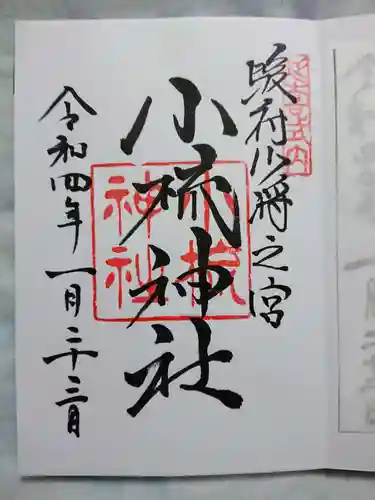 駿府少将之宮
小梳神社
令和四年一月二十三日
小梳神社